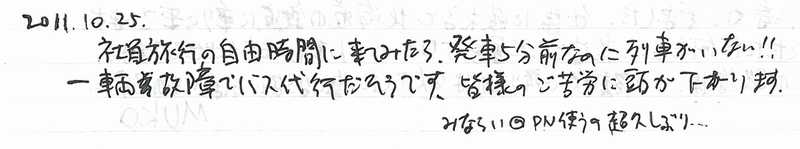 2011.10.25.
社員旅行の自由時間に来てみたら、発車5分前なのに列車がいない!!
一車両故障でバス代行だそうです。皆様のご苦労に頭が下がります。
みならい@PN使うの超久しぶり…